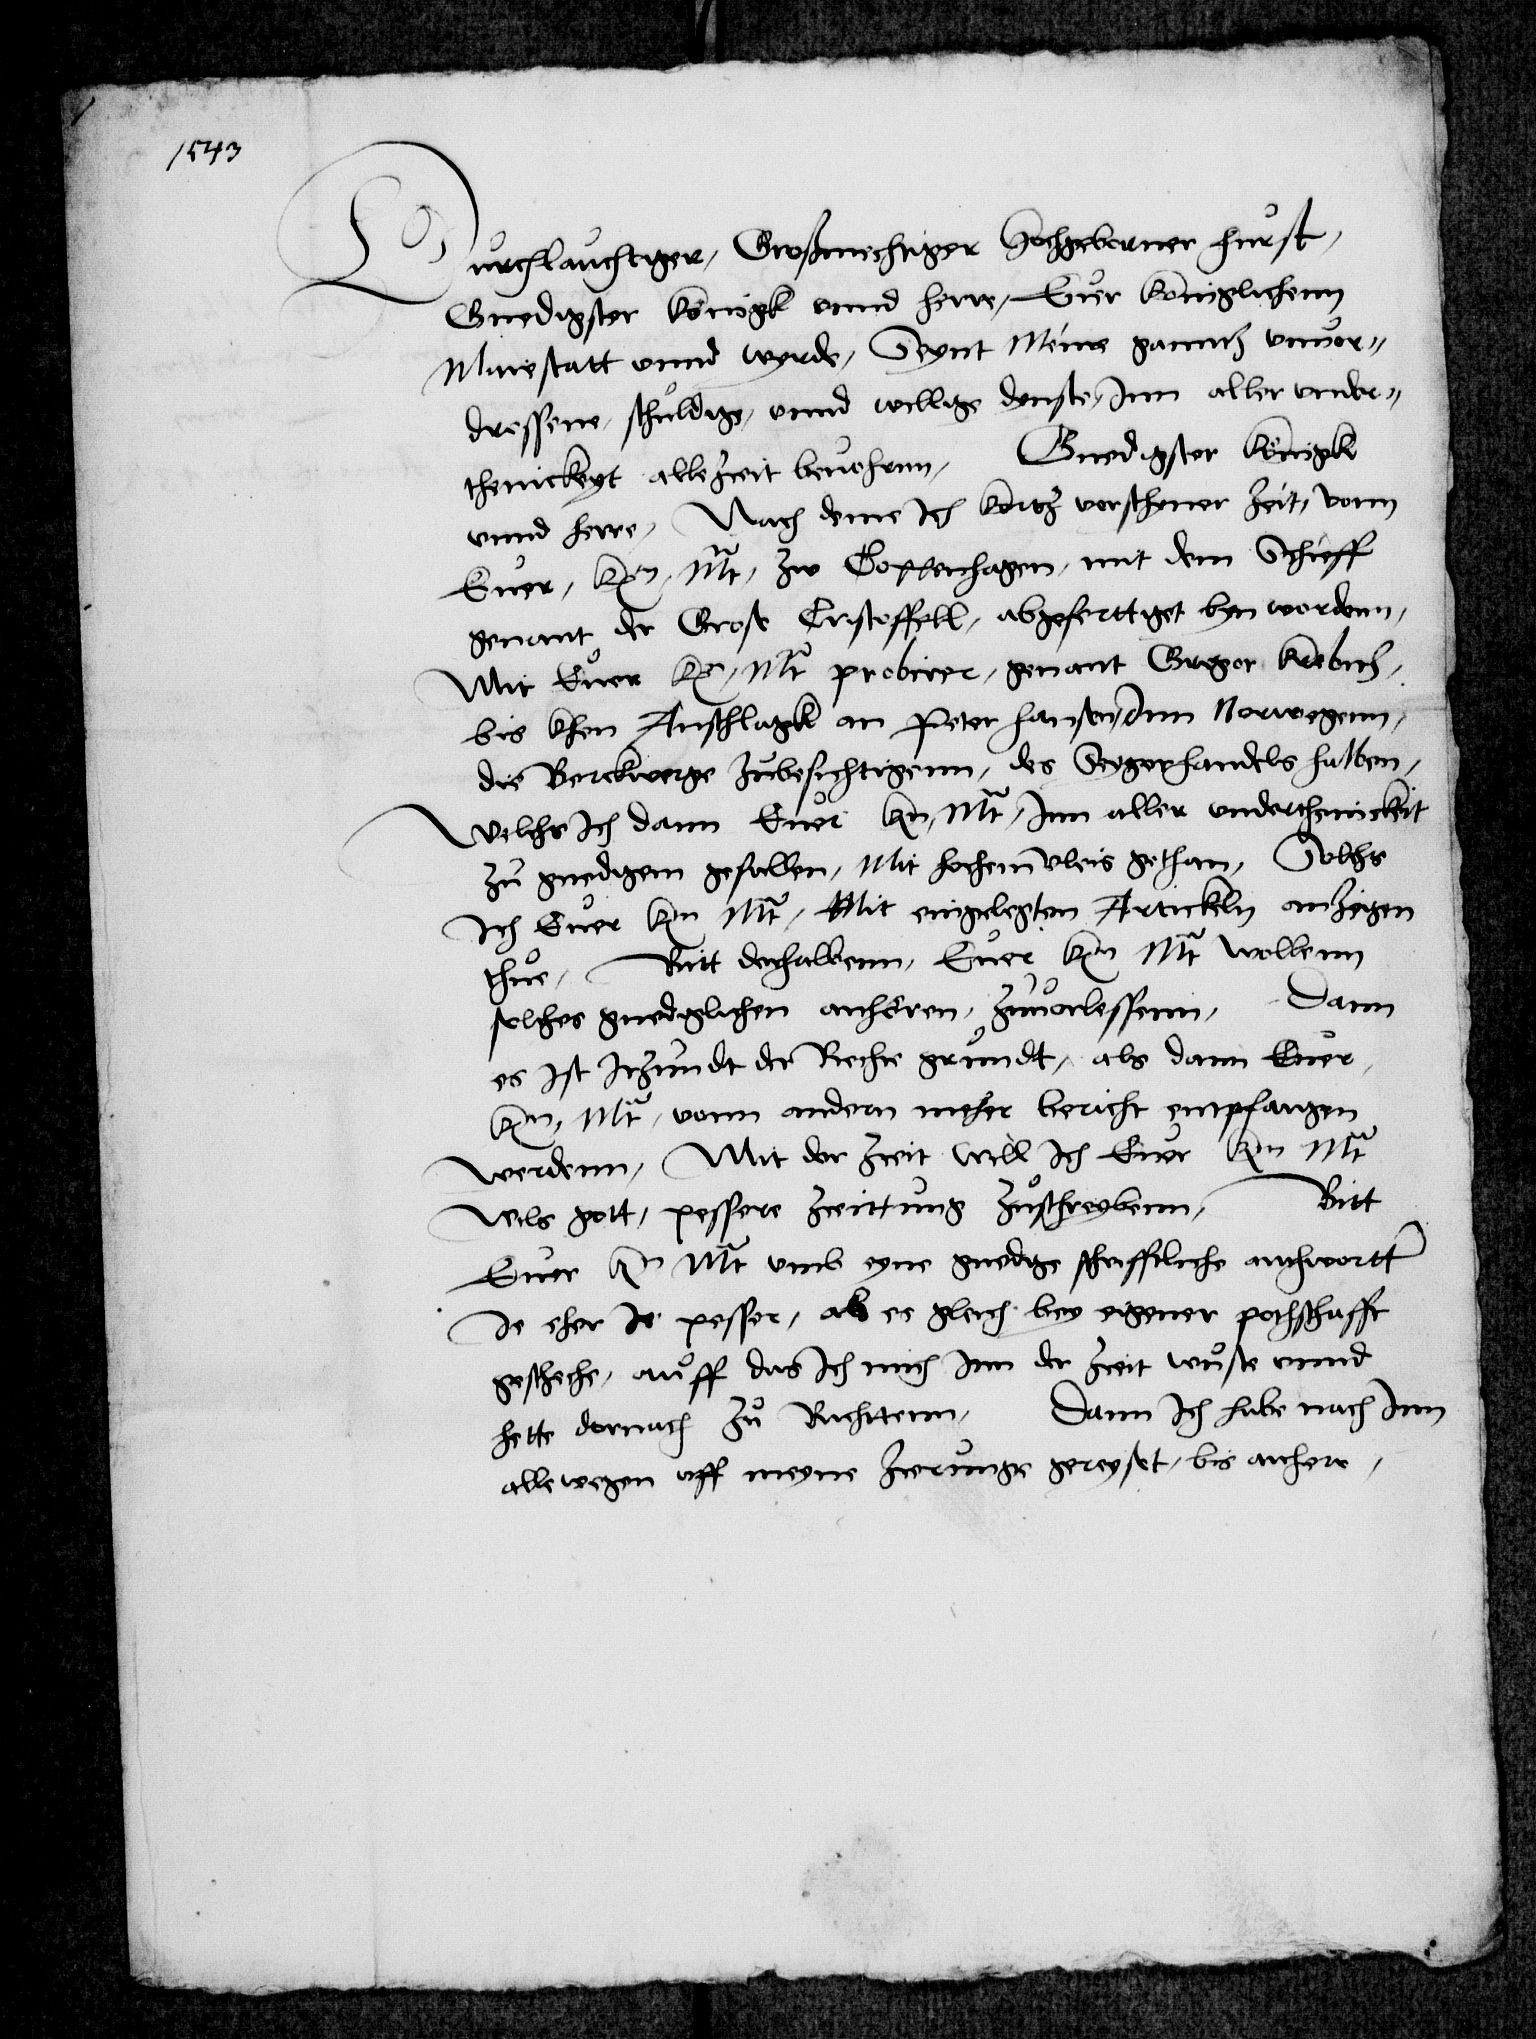 1543
Durchlauchtiger, Großmechtiger Hochgeborner furst,
Gnedigster Konigk vnnd herre, Euer koniglichenn
Maiestatt vnnd wyrde, Seynt Meine gannth vnuor„
drossene, schuldige, vnnd willige dynste, Jnn aller vnder„
thenickeyt alleZeit beuohrnn, Gnedigster Königk
vnnd herre, Nach deme Jch kortz vorschyner Zeit, vonn
Euer, kn, Mt, zw Coppenhagen, mit dem Schieff
genant der Grose Cristoffell, abgeferttiget byn wordenn,
Mit Euer kn, Mt probirer, genant Gregor
bis khen Anschlagk an Peter hansen, Jnn Norwegenn,
die Berckwerge Zubesichtigenn, des Seygerhandels halben,
Welchs Jch dann Euer kn, Mt, Jnn aller vnderthenickeit
Zu gnedigem gefallen, Mit hochem vleis gethan, Solchs
Jch Euer kn Mt, Mit eingelegten Artickeln anZeigen
thue, Bitt derhalbenn, Euer kn Mt wollenn
solches gnediglichen anhören, Zuuorlessenn, Dann
es ist itzundt der Rechte grundt, als dann Euer,
kn, Mt, vonn andern meher bericht empfangen
werdenn, Mit der Zeit will Jch Euer kn Mt
wils gott, pessere Zeittung Zuschreybenn, Bitt
Euer kn Mt vmb eyne gnedige schrifftliche anthwortt
Je eher Je pesser, ab es gleich bey eigener pothschafft
gescheche, auff das Jch mich Jnn der Zeit wuste vnnd
hette dornach Zu Richttenn, Dann Jch habe nach Jnn
allewegen vff meyne Zerunge gereyset, bis anhere,